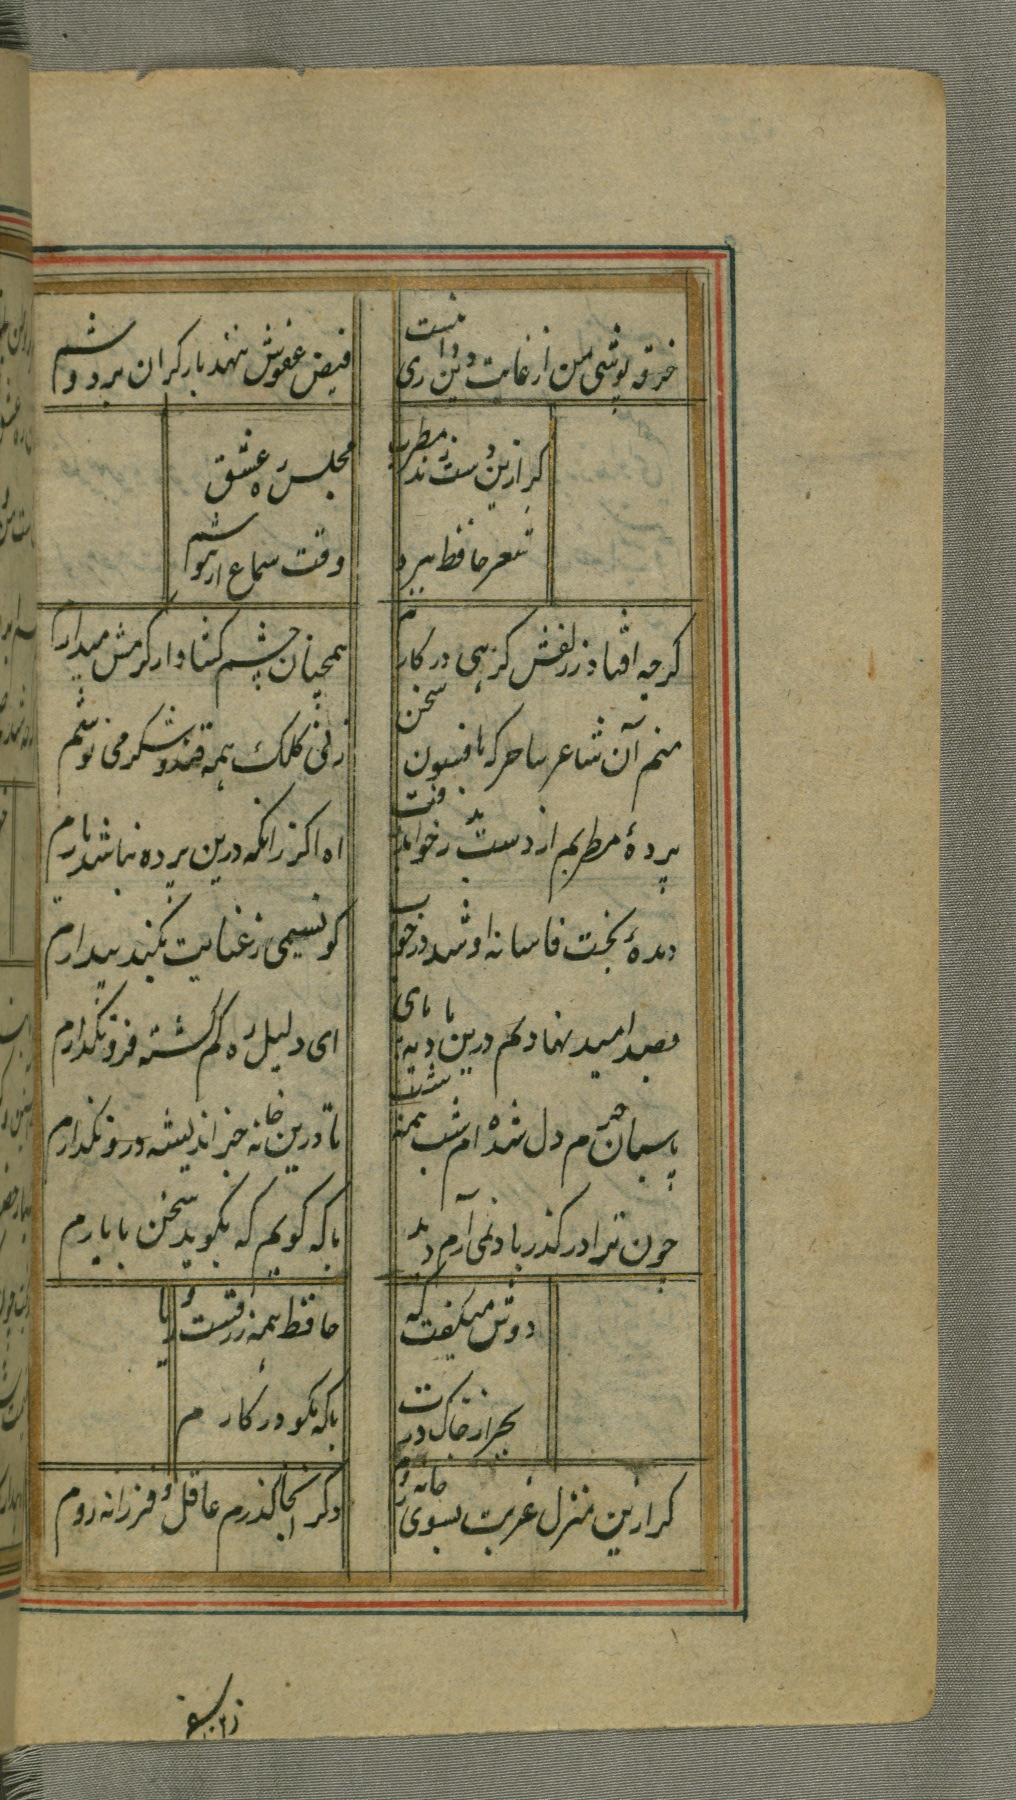 خرقه پوشی من از غایت دین داری نیست
فیض عفوش ننهد بار گران بر دوشم
گر ازین دست زند مطرب
مجلس ره عشق
شعر حافظ ببرد
وقت سماع از هوشم
گرچه افتاد ز زلفش گرهی در کارم
همچنان چشم گشاد از کرمش میدارم
منم آن شاعر ساحر که بافسون سخن
از نی کلک همه قند و شکر می نوشم
پردهٔ مطربم از دست بدر خواهد رفت
اه اگر زانکه درین پرده نباشد بارم
دیدهٔ بخت فاسانه او شد در خواب
کو نسیمی ز عنایت بکند بیدارم
بصد امید نهادیم درین بادیه پای
ای دلیل ره گم گشته فرو نگذارم
پاسبان حرم دل شده ام شب همه شب
تا درین خانه جز اندیشه درو نگذارم
چون ترا در گذر باد نمی آرم دید
با که گویم که بگوید سخن با یارم
دوش میگفت که
حافظ همه زرقست و ریا
بجز از خاک درت
با که بگو در کارم
گر ازین منزل غربت بسوی خانه روم
دگر آنجا گذرم عاقل و فرزانه روم
زین سفر